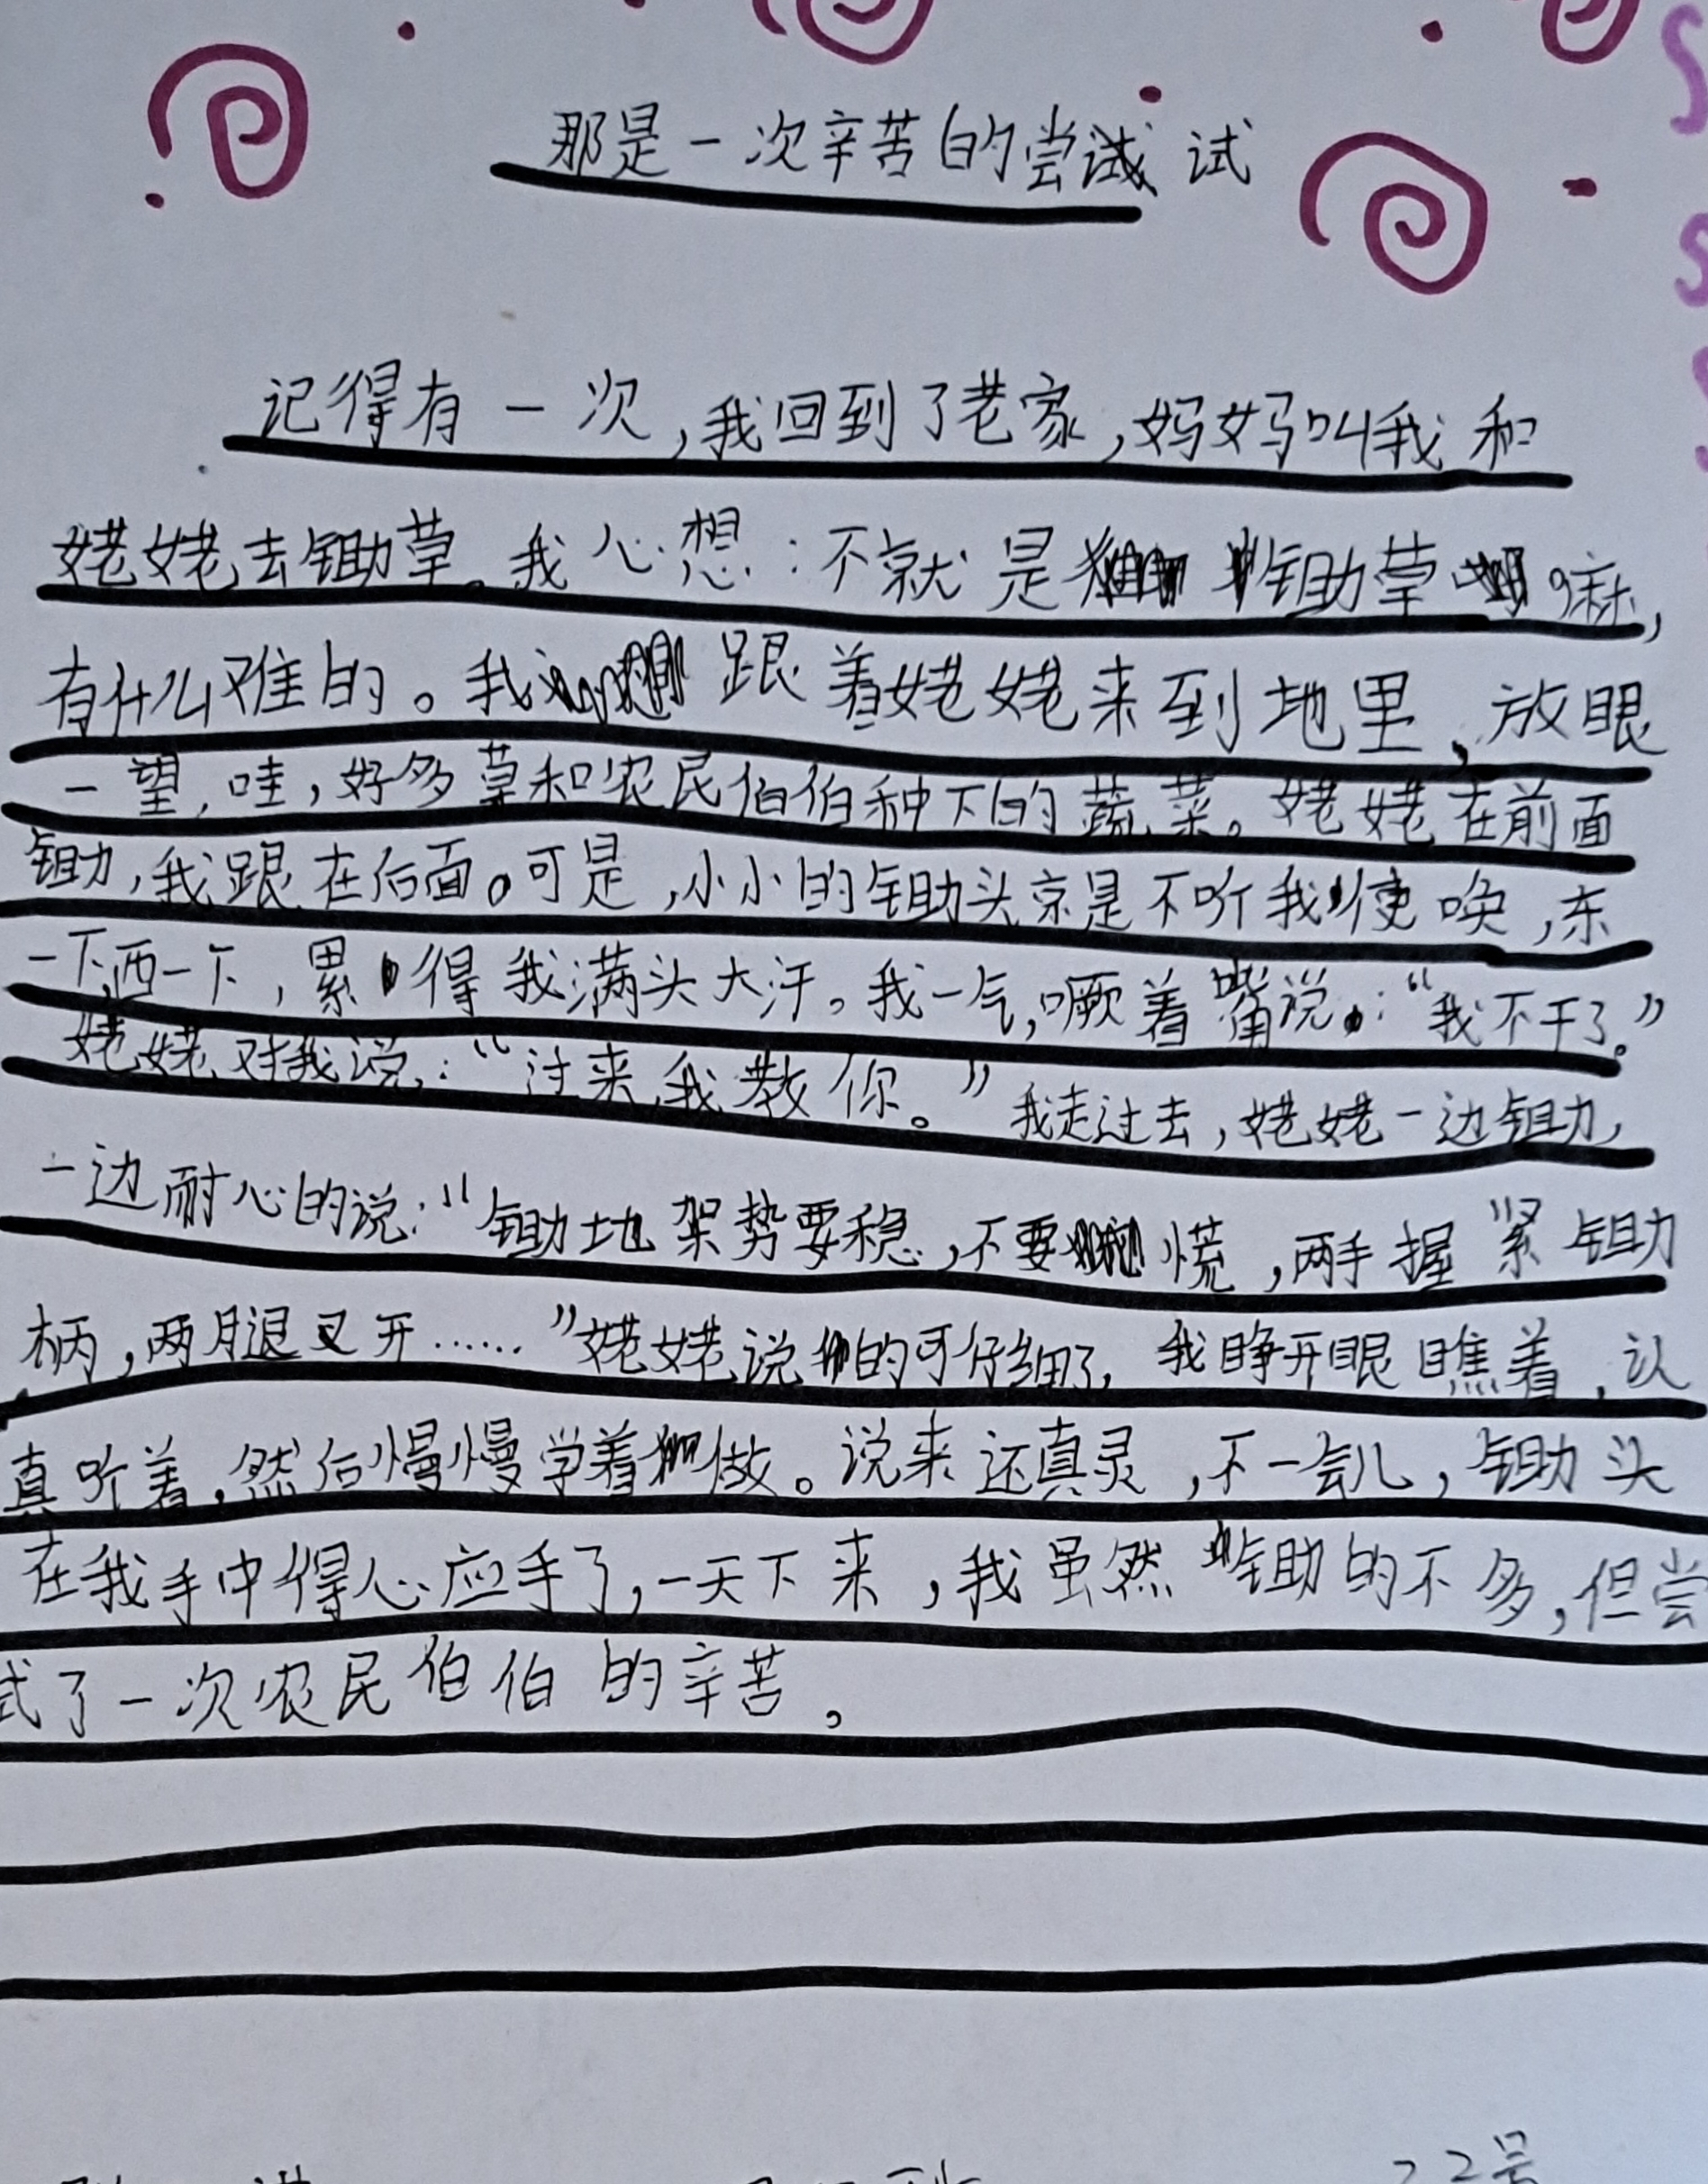 那是一次辛苦的尝试
记得有一次,我回到了老家,妈妈叫我和
姥姥去锄草。我心想:不就是锄草嘛,
有什么难的。我跟着姥姥来到地里,放眼
一望,哇,好多草和农民伯伯种下的蔬菜。姥姥在前面
锄,我跟在后面。可是,小小的锄头京是不听我使唤,东
一下西一下,累得我满头大汗。我一气,噘着嘴说:“我不干了。”
姥姥对我说:“过来,我教你。”我走过去,姥姥一边锄,
一边耐心的说:“锄地架势要稳,不要慌,两手握紧锄
柄,两腿叉开……”姥姥说的可仔细了,我睁开眼瞧着,认
真听着,然后慢慢学着做。说来还真灵,不一会儿,锄头
在我手中得心应手了,一天下来,我虽然锄的不多,但尝
试了一次农民伯伯的辛苦。
22号